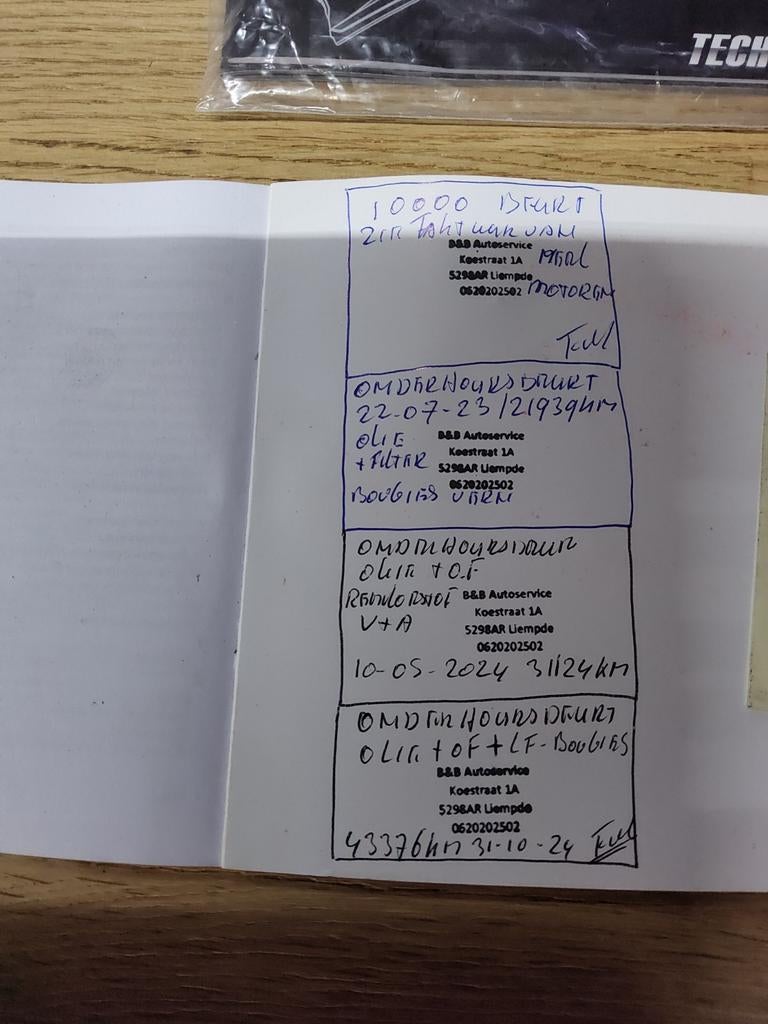 TECH
10000 BEURT
ZIE FAKTUUR VAN
B&B Autoservice
Koestraat 1A
MOTOREN
5298AR Liempde
0620202502
ONDERHOUDSBEURT
22-07-23 / 21939KM
OLIE
+ FILTER
B&B Autoservice
Koestraat 1A
5298AR Liempde
0620202502
BOUGIES VERN
ONDERHOUDSBEURT
OLIE + O.F
REMVLOEISTOF
V+A
B&B Autoservice
Koestraat 1A
5298AR Liempde
0620202502
10-05-2024 31124KM
ONDERHOUDSBEURT
OLIE + OF + LF - BOUGIES
B&B Autoservice
Koestraat 1A
5298AR Liempde
0620202502
43376KM 31-10-24